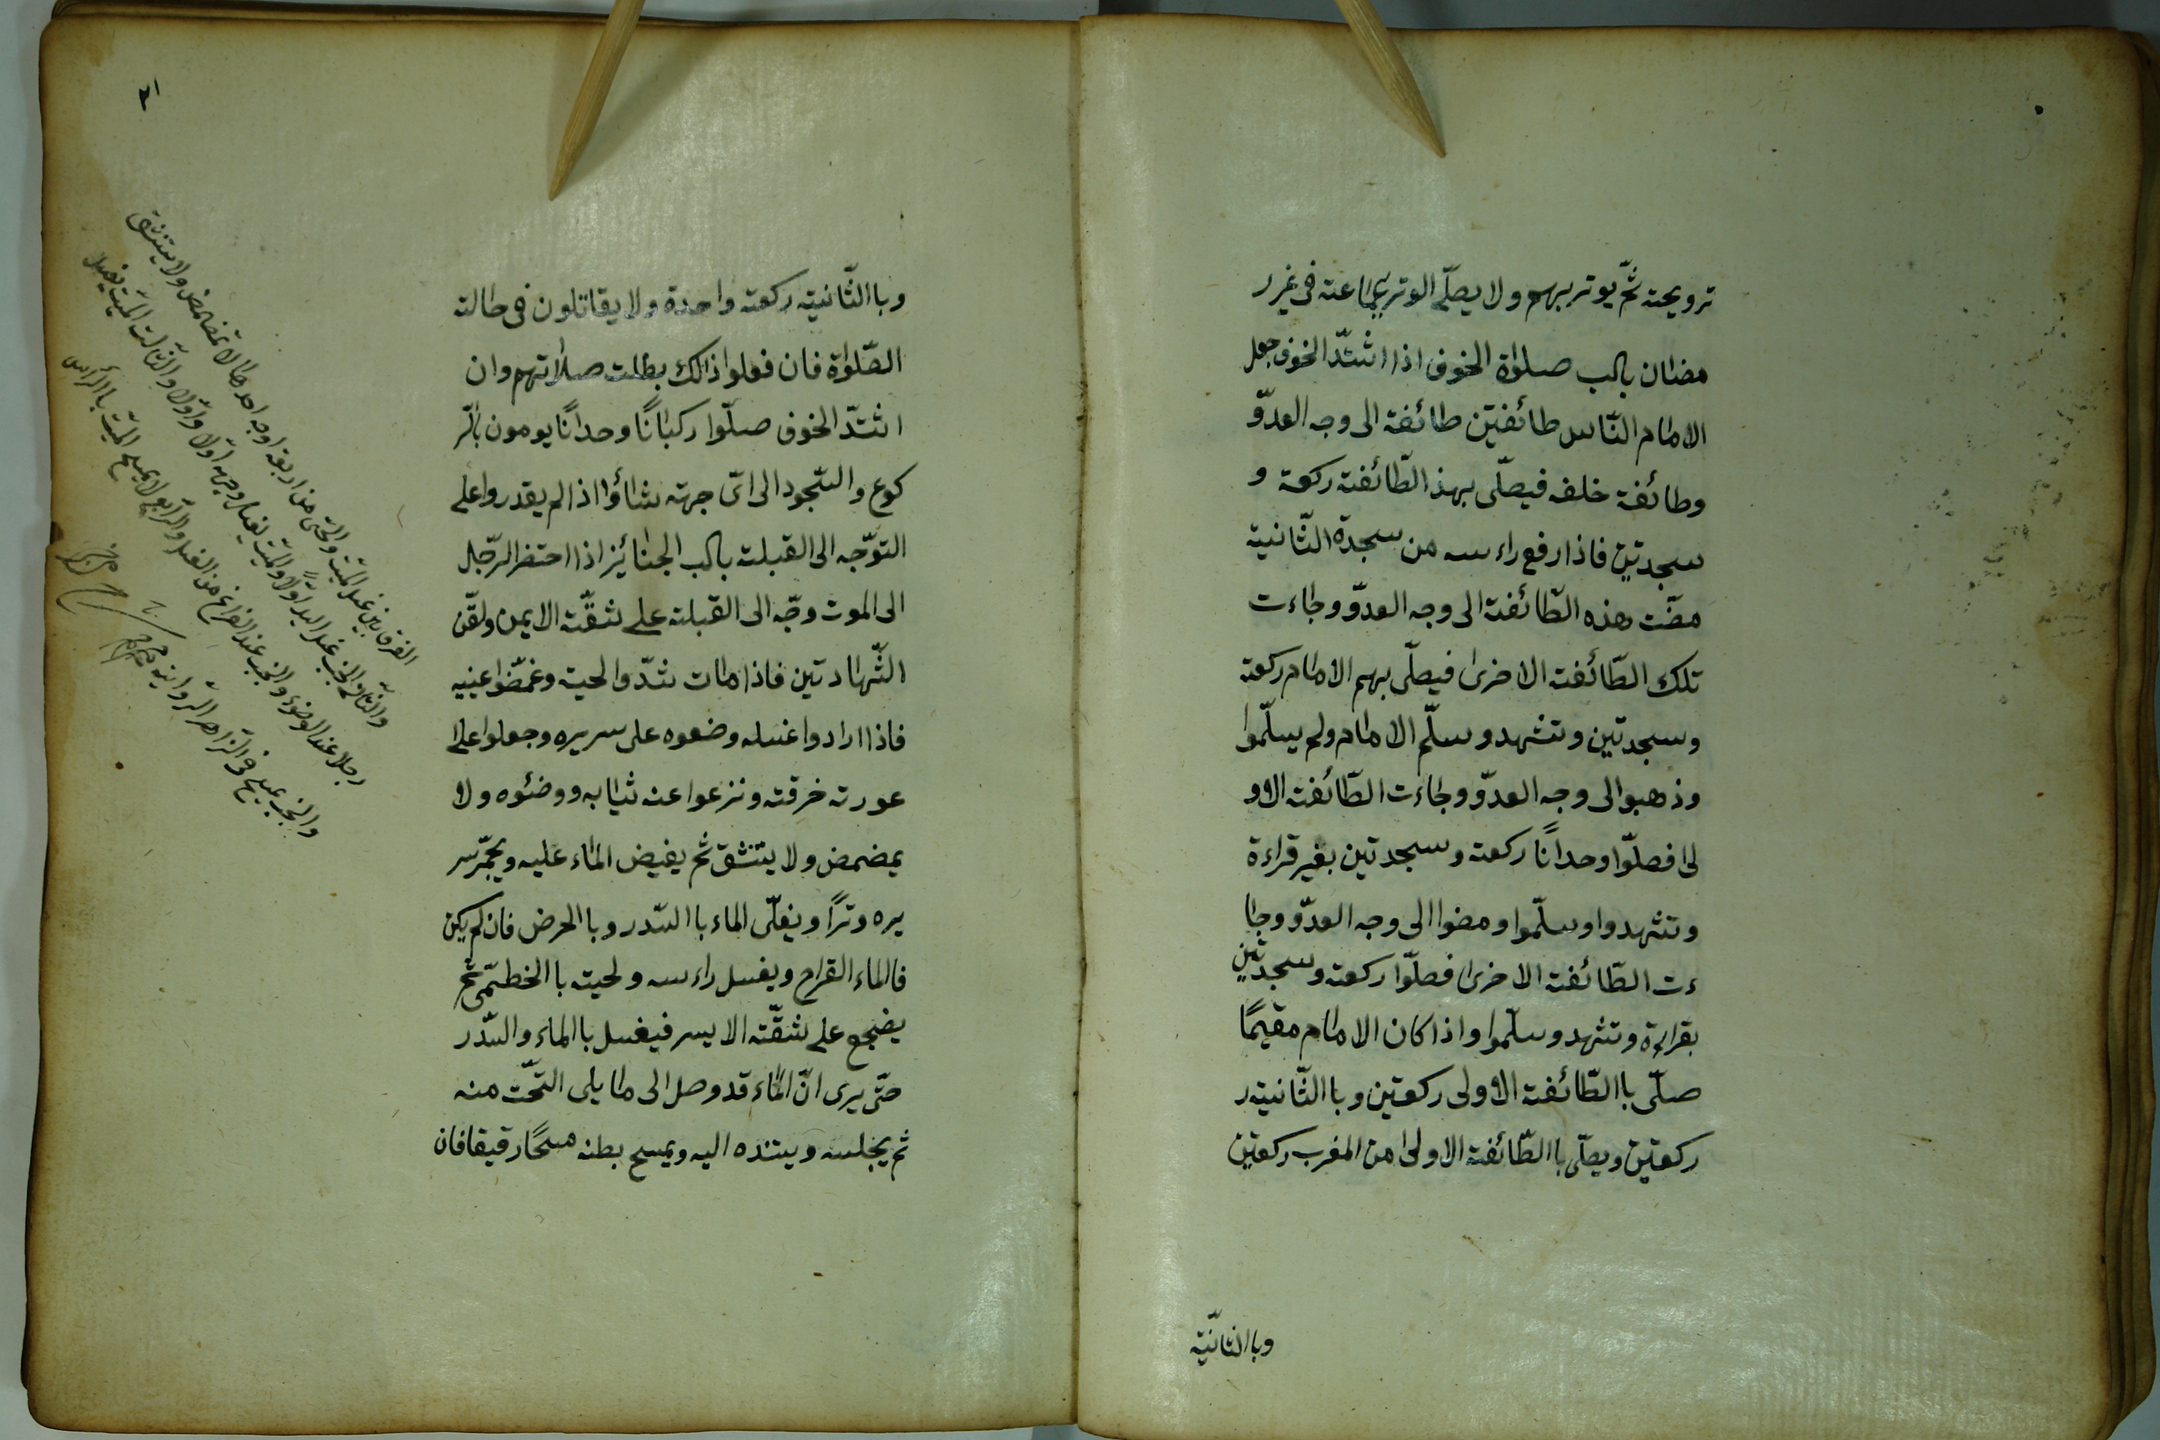 ترويحة ثمّ يوتر بهم ولا يصلّى الوتر بجماعة فى غير ر
مضان باب صلوٰة الخوف اذا اشتدّ الخوف جعل
الامام النّاس طائفتين طائفة الى وجه العدوّ
وطائفة خلفه فيصلّى بهذ الطّائفة ركعة و
سجدتين فاذا رفع راءسه من سجدة الثّانية
مضت هذه الطّائفة الى وجه العدوّ وجاءت
تلك الطّائفة الاخرى فيصلّى بهم الامام ركعة
وسجدتين وتشهد وسلّم الامام ولم يسلّموا
وذهبوا الى وجه العدوّ وجاءت الطّائفة الاو
لى فصلّوا وحدانًا ركعة وسجدتين بغير قراءة
وتشهدوا وسلّموا ومضوا الى وجه العدوّ وجا
ءت الطّائفة الاخرى فصلّوا ركعة وسجدتين
بقراءة وتشهد وسلّموا واذا كان الامام مقيمًا
صلّى باالطّائفة الاولى ركعتين وباالثّانية ر
ركعتين ويصلّى باالطّائفة الاولى من المغرب ركعتين
وباالثانيّة
وباالثّانية ركعة واحدة ولا يقاتلون فى حالة
الصّلوٰة فان فعلوا ذالك بطلت صلاتهم وان
اشتدّ الخوف صلّوا ركبانًا وحدانًا يومون باالر
كوع والسّجود الى اىّ جهة شاؤا اذا لم يقدروا على
التوّجه الى القبلة باب الجنائيز اذا احتضر الرّجل
الى الموت وجّه الى القبلة على شقّه الايمن ولقّن
الشّهادتين فاذا مات شدّوا لحيته وغمّضوا عينيه
فاذا ارادوا غسله وضعوه على سريره وجعلوا على
عورته خرقة ونزعوا عنه ثيابه ووضئوه ولا
يمضمض ولا يتنشق ثم يفيض الماء عليه ويجمّر سر
يره وترًا ويغلّى الماء باالسّدر وباالحرض فان لم يكن
فالماء القراح ويغسل راءسه ولحيته باالخطمّى ثم
يضجع على شقّه الايسر فيغسل باالماء والسّدر
حتّى يرى انّ الماء قد وصل الى ما يلى التحّت منه
ثم يجلسه ويسنده اليه ويمسح بطنه مسحًا رقيقا فان
الفرق بين غسل الميّت والحىّ من اربعة اوجه احدها لا يتمضمض ولا يتنشق
والثّانى الجنب غسل اليد اوّلا والميّت يغسل وجهه اوّلا والثّالث الميّت يغسل
رجلا عند الوضوء والجنب عند الفراغ من الغسل والرّابع لا يمسح الميّت باالرأس
والجنب يمسح فى الظّاهر الرّواية